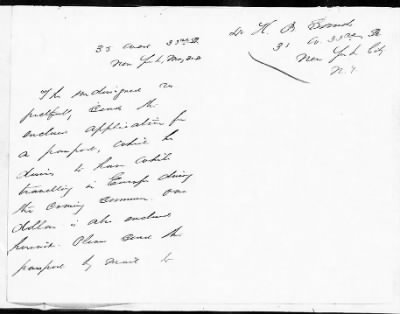 35 West 33rd St.
New York, May 2nd
The undersigned re-
spectfully sends the
enclosed application for
a passport, which he
desires to have while
travelling in Europe during
the coming summer. One
dollar is also enclosed
herewith. Please send the
passport by mail to
Dr H. B.
31 W. 33rd St
New York City
N.Y.